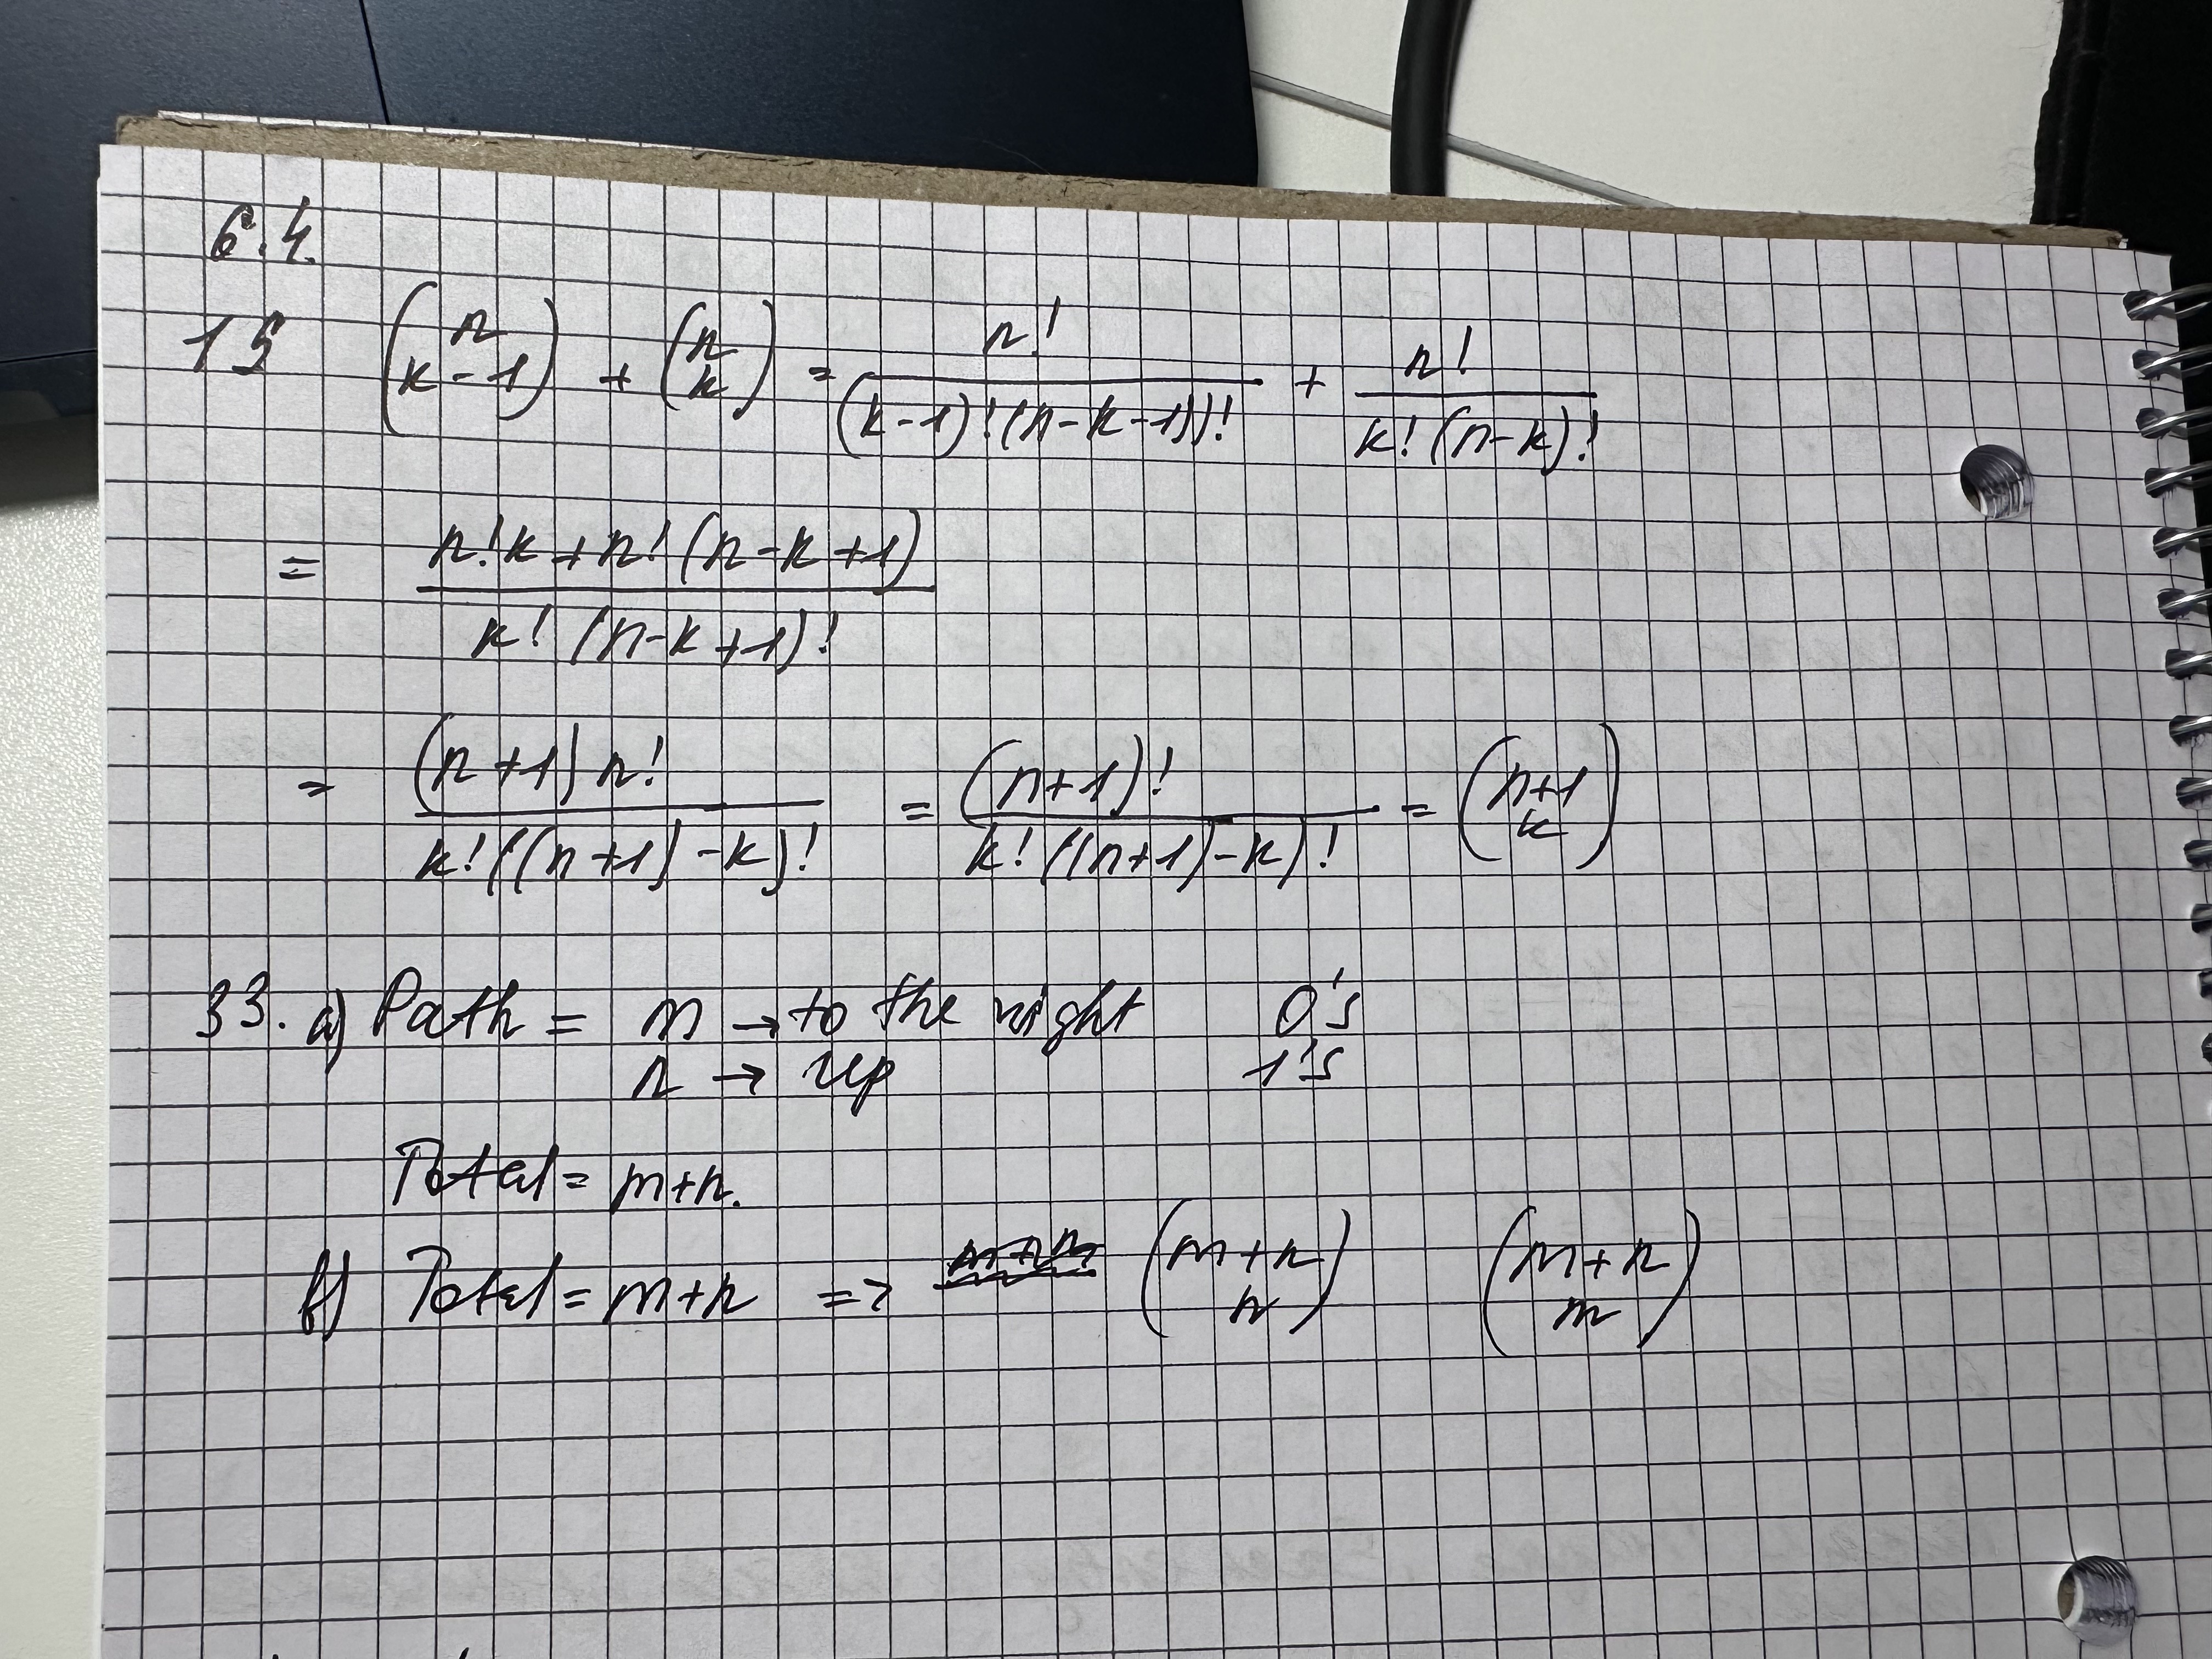 6.4.
15 (n k-1) + (n k) = n! / (k-1)!(n-k-1))! + n! / k!(n-k)!
= n!k+n!(n-k+1) / k!(n-k+1)!
= (n+1)n! / k!((n+1)-k)! = (n+1)! / k!((n+1)-k)! = (n+1 k)
33. a) Path = m → to the right 0's
n → up 1's
Total = m+n.
b) Total = m+n => (m+n n) (m+n m)